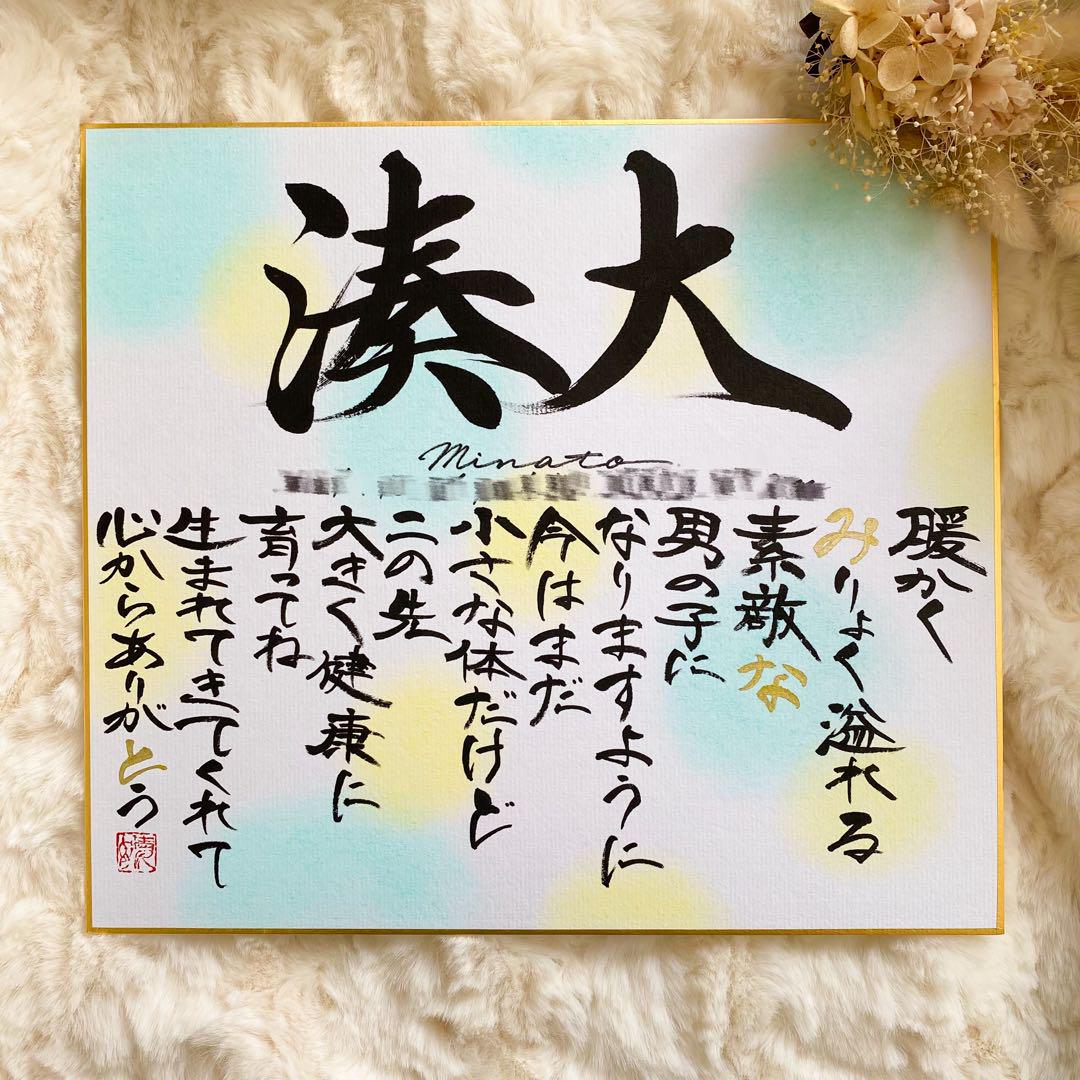 湊大
Minato
暖かく
みりょく溢れる
素敵な
男の子に
なりますように
今はまだ
小さな体だけど
この先
大きく健康に
育ってね
生まれてきてくれて
心からありがとう